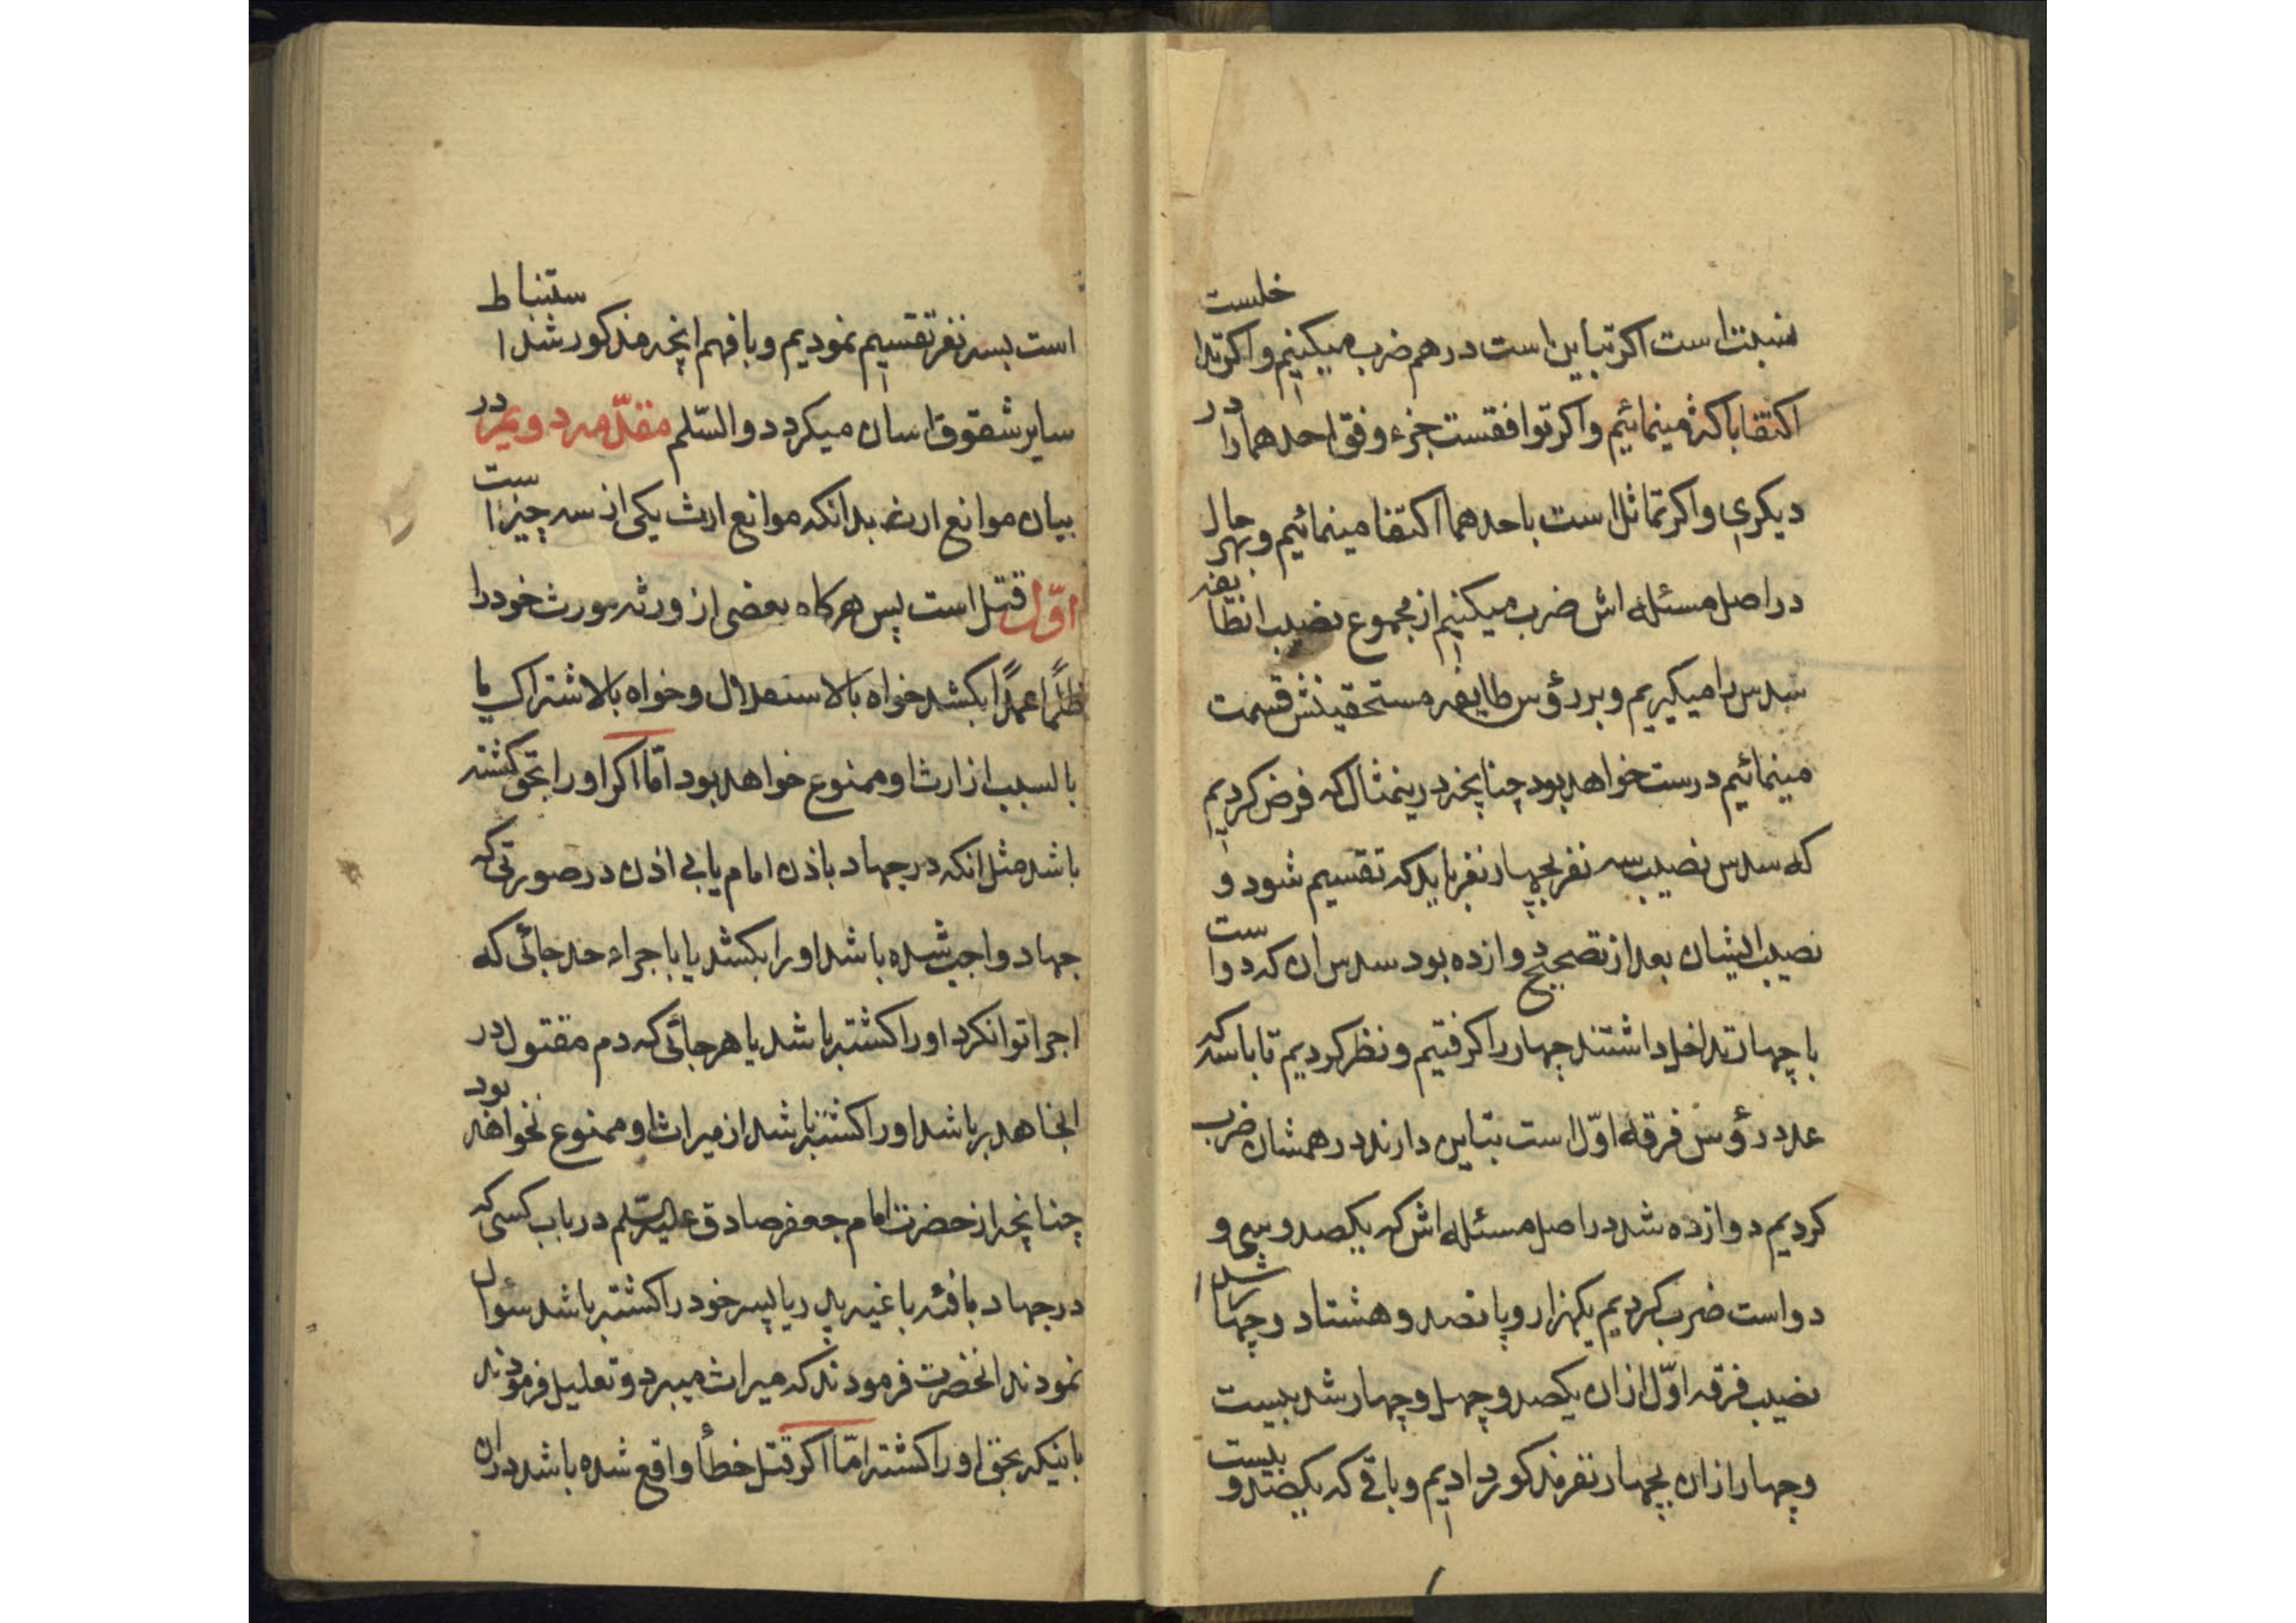 نسبتست اگر تباین است در هم ضرب میکنیم و اکر تداخلست
اکتفا باکثر مینمائیم و اکر توافقست جزء وفق احدهما را در
دیکری و اکر تماثل است باحدهما اکتفا مینمائیم و بهر حال
در اصل مسئله اش ضرب میکنیم از مجموع نصیب انطایفه
سدس را میکیریم و بر رؤس طایفه مستحقینش قسمت
مینمائیم درست خواهد بود چنانچه درینمثال که فرض کردیم
که سدس نصیب سه نفر بچهار نفر باید که تقسیم شود و
نصیب ایشان بعد از تصحیح دوازده بود سدس ان که دو است
با چهار تداخل داشتند چهار را کرفتیم و نظر کردیم تا با سه که
عدد رؤس فرقه اوّل است تباین دارند در همشان ضرب
کردیم دوازده شد در اصل مسئله اش که یکصد و سی و
دو است ضرب کردیم یکهزار و پانصد و هشتاد و چهار شد
نصیب فرقه اوّل ازان یکصد و چهل و چهار شد بیست
و چهار ازان بچهار نفر مذکور دادیم و باقی که یکصد و بیست
است بسه نفر تقسیم نمودیم و با فهم انچه مذکور شد استنباط
سایر شقوق اسان میکردد والسّلم مقدّمه دویم در
بیان موانع ارث بدانکه موانع ارث یکی از سه چیز است
اوّل قتل است پس هر کاه بعضی از ورثه مورث خود را
ظلمًا عمدًا بکشد خواه بالاستقلال و خواه بالاشتراک یا
بالسبب از ارث او ممنوع خواهد بود امّا اکر او را بحق کشته
باشد مثل انکه در جهاد باذن امام یا بی اذن در صورتی که
جهاد واجب شده باشد او را بکشد یا با جراء حد جائی که
اجرا تواند کرد او را کشته باشد یا هر جائی که دم مقتول در
انجا هدر باشد او را کشته باشد از میراث او ممنوع نخواهد بود
چنانچه از حضرت امام جعفر صادق علیه السّلم در باب کسی که
در جهاد با فئه باغیه پدر یا پسر خود را کشته باشد سئوال
نمودند انحضرت فرمودند که میراث میبرد و تعلیل فرمودند
باینکه بحق او را کشته امّا اکر قتل خطأ واقع شده باشد دران